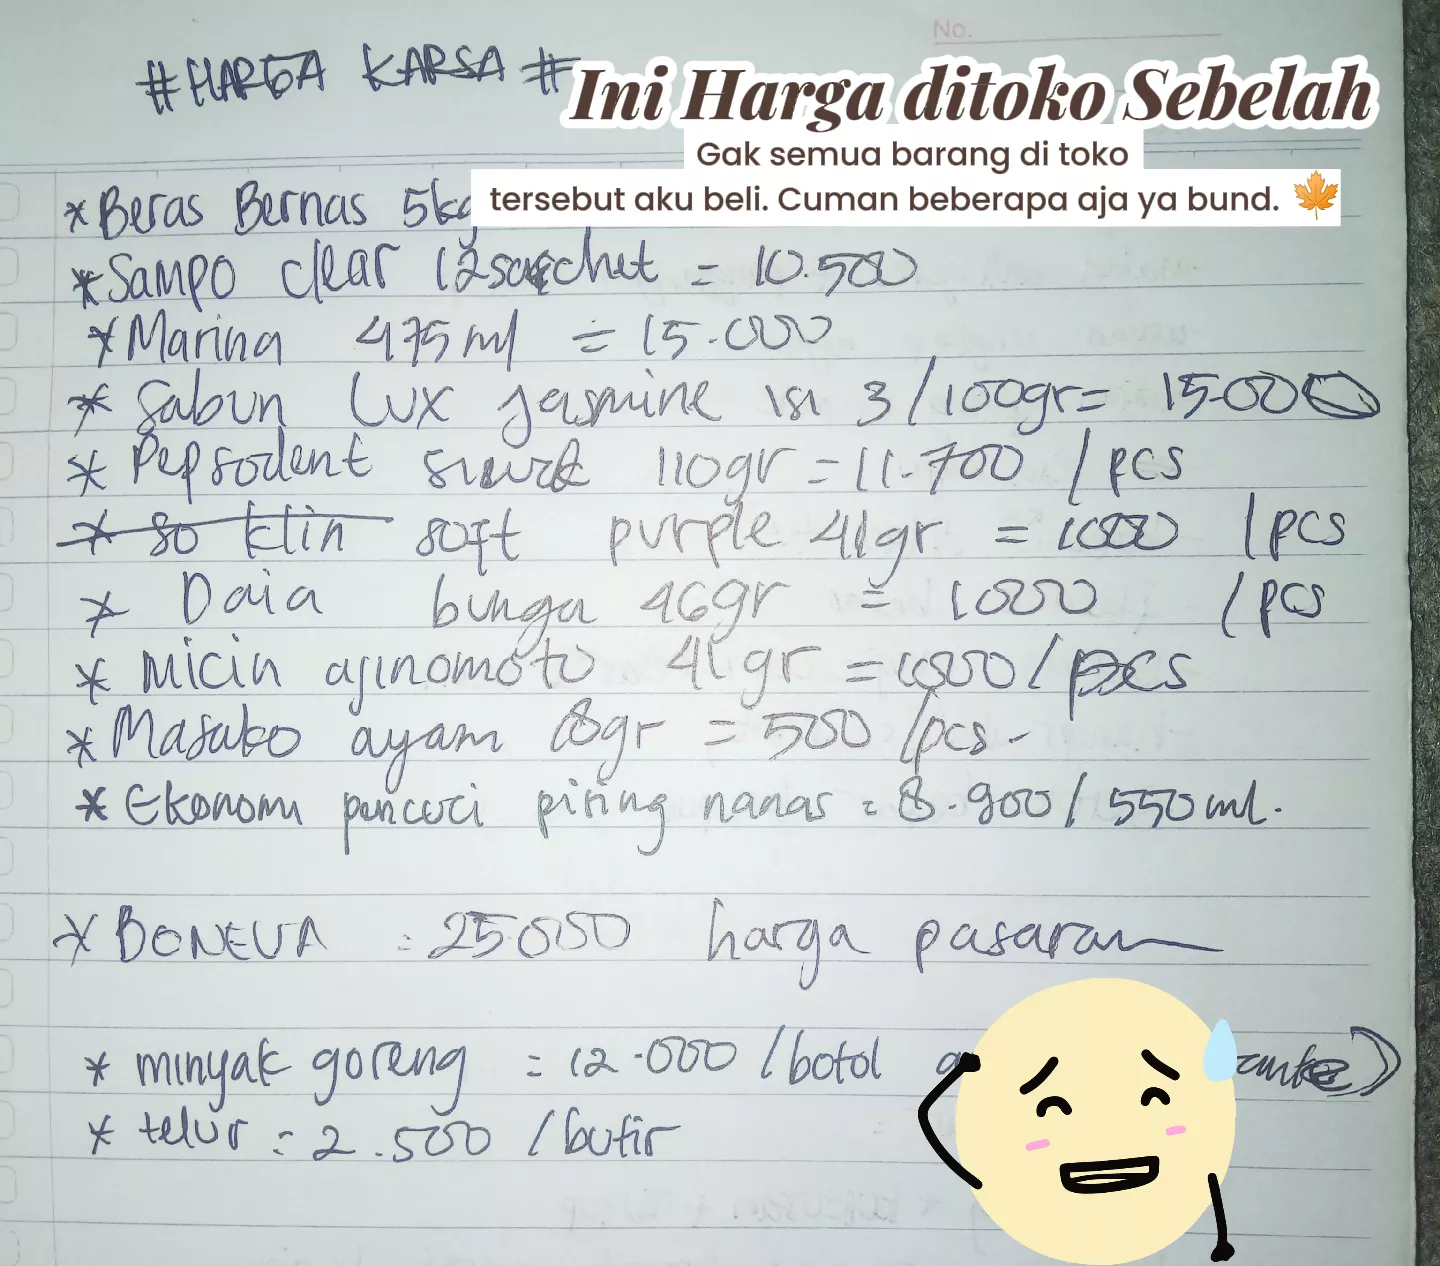 No.
#HARGA KARSA#
Ini Harga ditoko Sebelah
Gak semua barang di toko
tersebut aku beli. Cuman beberapa aja ya bund.
* Beras Bernas 5kg
* Sampo clear 12 sachet = 10.500
* Marina 475 ml = 15.000
* Sabun Lux Jasmine isi 3/100gr = 15.000
* Pepsodent 110gr = 11.700 /pcs
* so klin soft purple 41gr = 1000 /pcs
* Daia bunga 46gr = 1000 /pcs
* Micin ajinomoto 41gr = 1000/pcs
* Masako ayam 8gr = 500 /pcs-
* Ekonomi pencuci piring nanas = 8.900/550ml.
* BONEVA = 25.000 harga pasaran
* minyak goreng = 12.000 /botol
* telur = 2.500 /butir